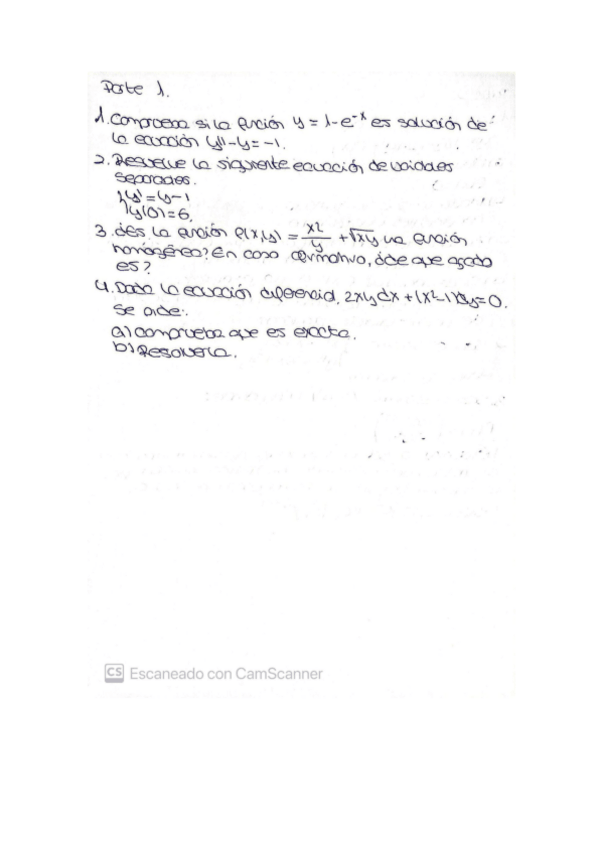 Parte 1.
1. Comprueba si la función y = 1 - e^-x es solución de
la ecuación y'' - y = -1.
2. Resuelve la siguiente ecuación de variables
separadas.
{ y' = y - 1
y(0) = 6.
3. ¿Es la función f(x,y) = x2/y + √xy una función
homogénea? En caso afirmativo, ¿de que grado
es?
4. Dada la ecuación diferencial, 2xy dx + (x²-1) dy = 0.
Se pide:
a) Comprueba que es exacta.
b) Resolverla.
CS Escaneado con CamScanner